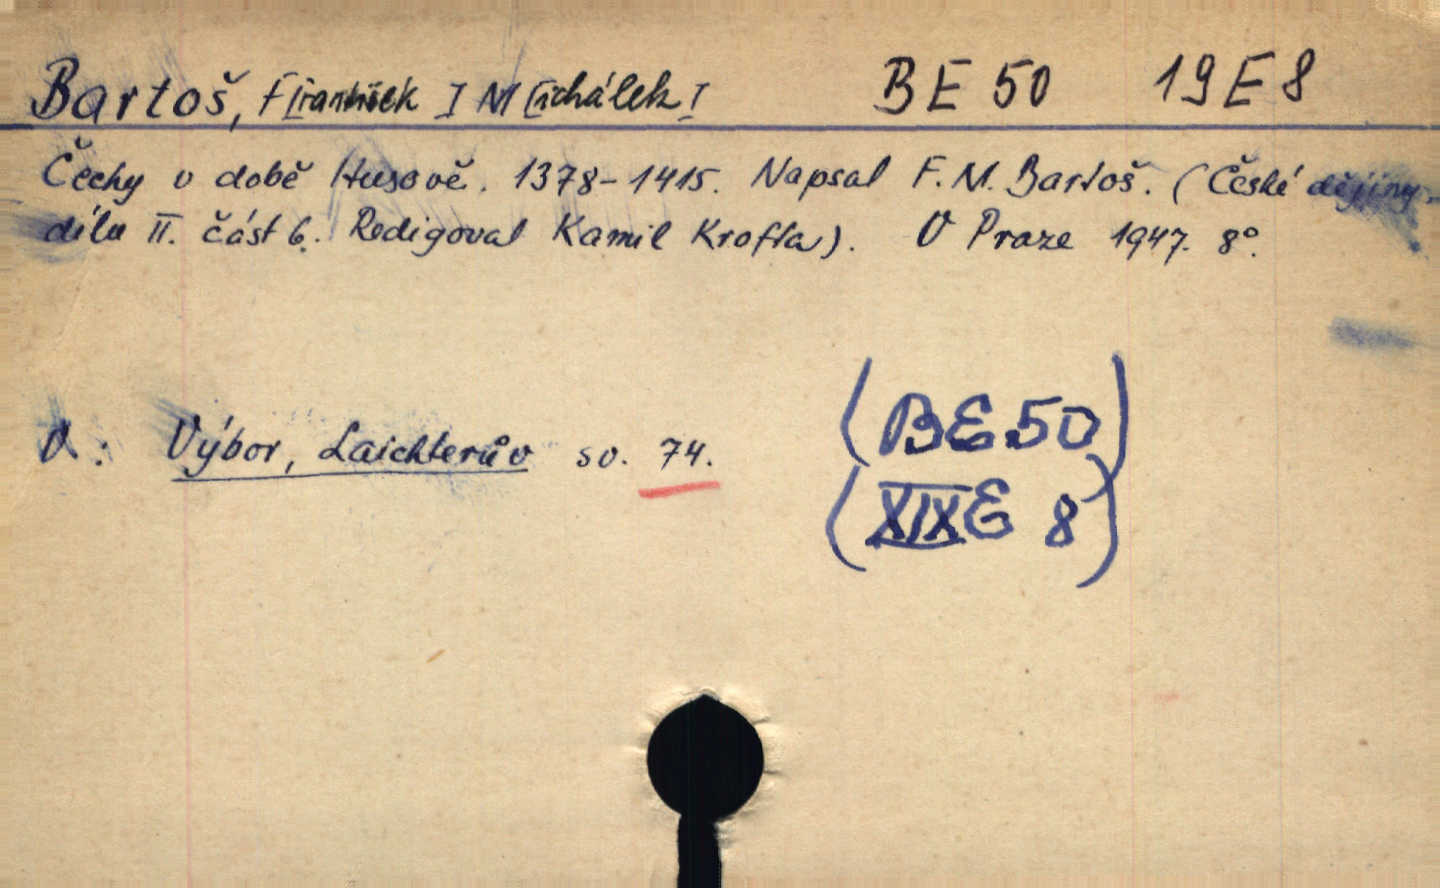 Bartoš, F[rantišek] M[ichálek] BE 50 19 E 8
Čechy v době Husově. 1378-1415. Napsal F. M. Bartoš. (České dějiny.
dílu II. část 6. Redigoval Kamil Krofta). V Praze 1947. 8°.
V: Výbor, Laichterův sv. 74.
(BE 50)
(XIX E 8)